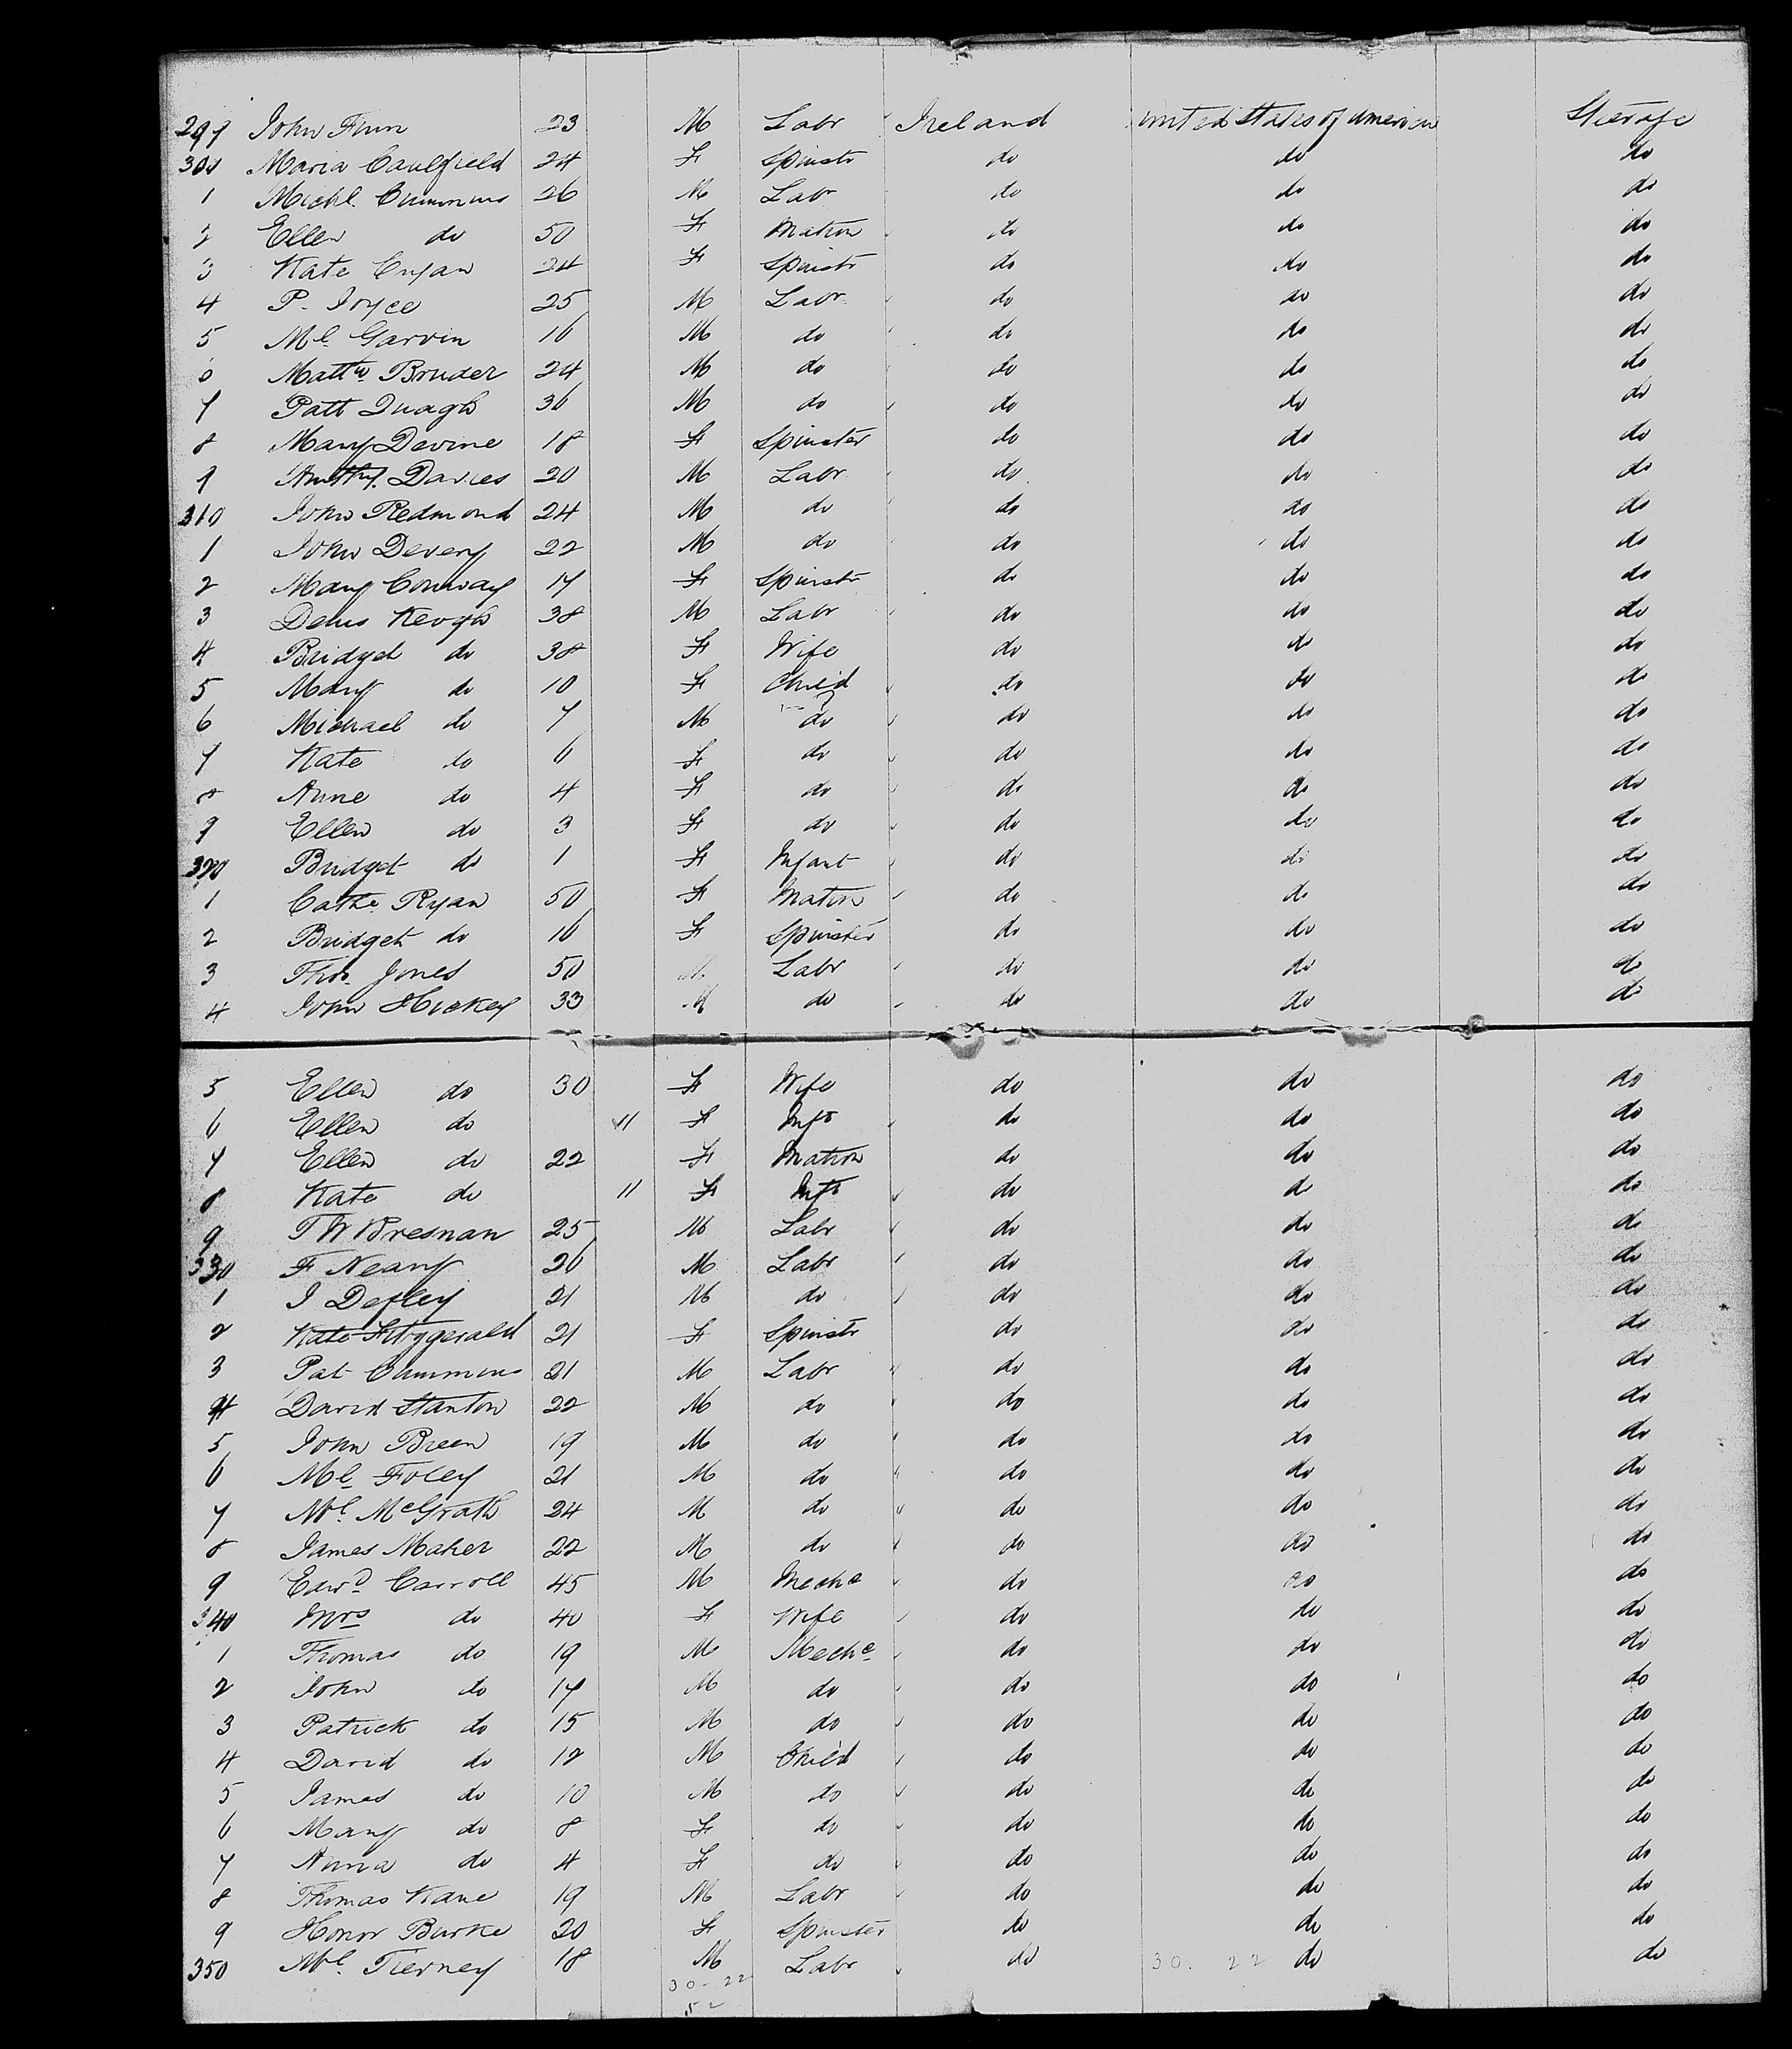 299 John Finn 23 M Labr Ireland United States of America Steerage
300 Maria Caulfield 24 F Spinstr do do do
1 Michl. Cummins 26 M Labr do do do
2 Ellen do 50 F Matron do do do
3 Kate 24 F Spinstr do do do
4 P. Joyce 25 M Labr do do do
5 Ml Garvin 16 M do do do do
6 Mattw Bruder 24 M do do do do
7 Patt 36 M do do do do
8 Mary Devine 18 F Spinster do do do
9 Anthy. Davies 20 M Labr do do do
310 John Redmond 24 M do do do do
1 John Devery 22 M do do do do
2 Mary Conway 17 F Spinstr do do do
3 Denis Keogh 38 M Labr do do do
4 Bridget do 38 F Wife do do do
5 Mary do 10 F Child do do do
6 Michael do 7 M do do do do
7 Kate do 6 F do do do do
8 Anne do 4 F do do do do
9 Ellen do 3 F do do do do
320 Bridget do 1 F Infant do do do
1 Cathe. Ryan 50 F Matron do do do
2 Bridget do 16 F Spinster do do do
3 Thos. Jones 50 M Labr do do do
4 John Hickey 33 M do do do do
5 Ellen do 30 F Wife do do do
6 Ellen do 11 F Inft do do do
7 Ellen do 22 F Matron do do do
8 Kate do 11 F Inft do do do
9 T W Bresnan 25 M Labr do do do
330 F Neary 26 M Labr do do do
1 J Defley 21 M do do do do
2 Kate Fitzgerald 21 F Spinstr do do do
3 Pat Cummins 21 M Labr do do do
4 David Stanton 22 M do do do do
5 John Breen 19 M do do do do
6 Ml Foley 21 M do do do do
7 Ml. McGrath 24 M do do do do
8 James Maher 22 M do do do do
9 Edwd Carroll 45 M Mechc do do do
340 Mrs do 40 F Wife do do do
1 Thomas do 19 M Mechc do do do
2 John do 17 M do do do do
3 Patrick do 15 M do do do do
4 David do 12 M Child do do do
5 James do 10 M do do do do
6 Mary do 8 F do do do do
7 Anna do 4 F do do do do
8 Thomas Kane 19 M Labr do do do
9 Honor Burke 20 F Spinster do do do
350 Ml. Tierney 18 M Labr do 30. 22 do do
30-22
52